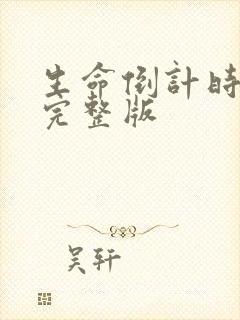 生命倒計時
完整版
吴轩